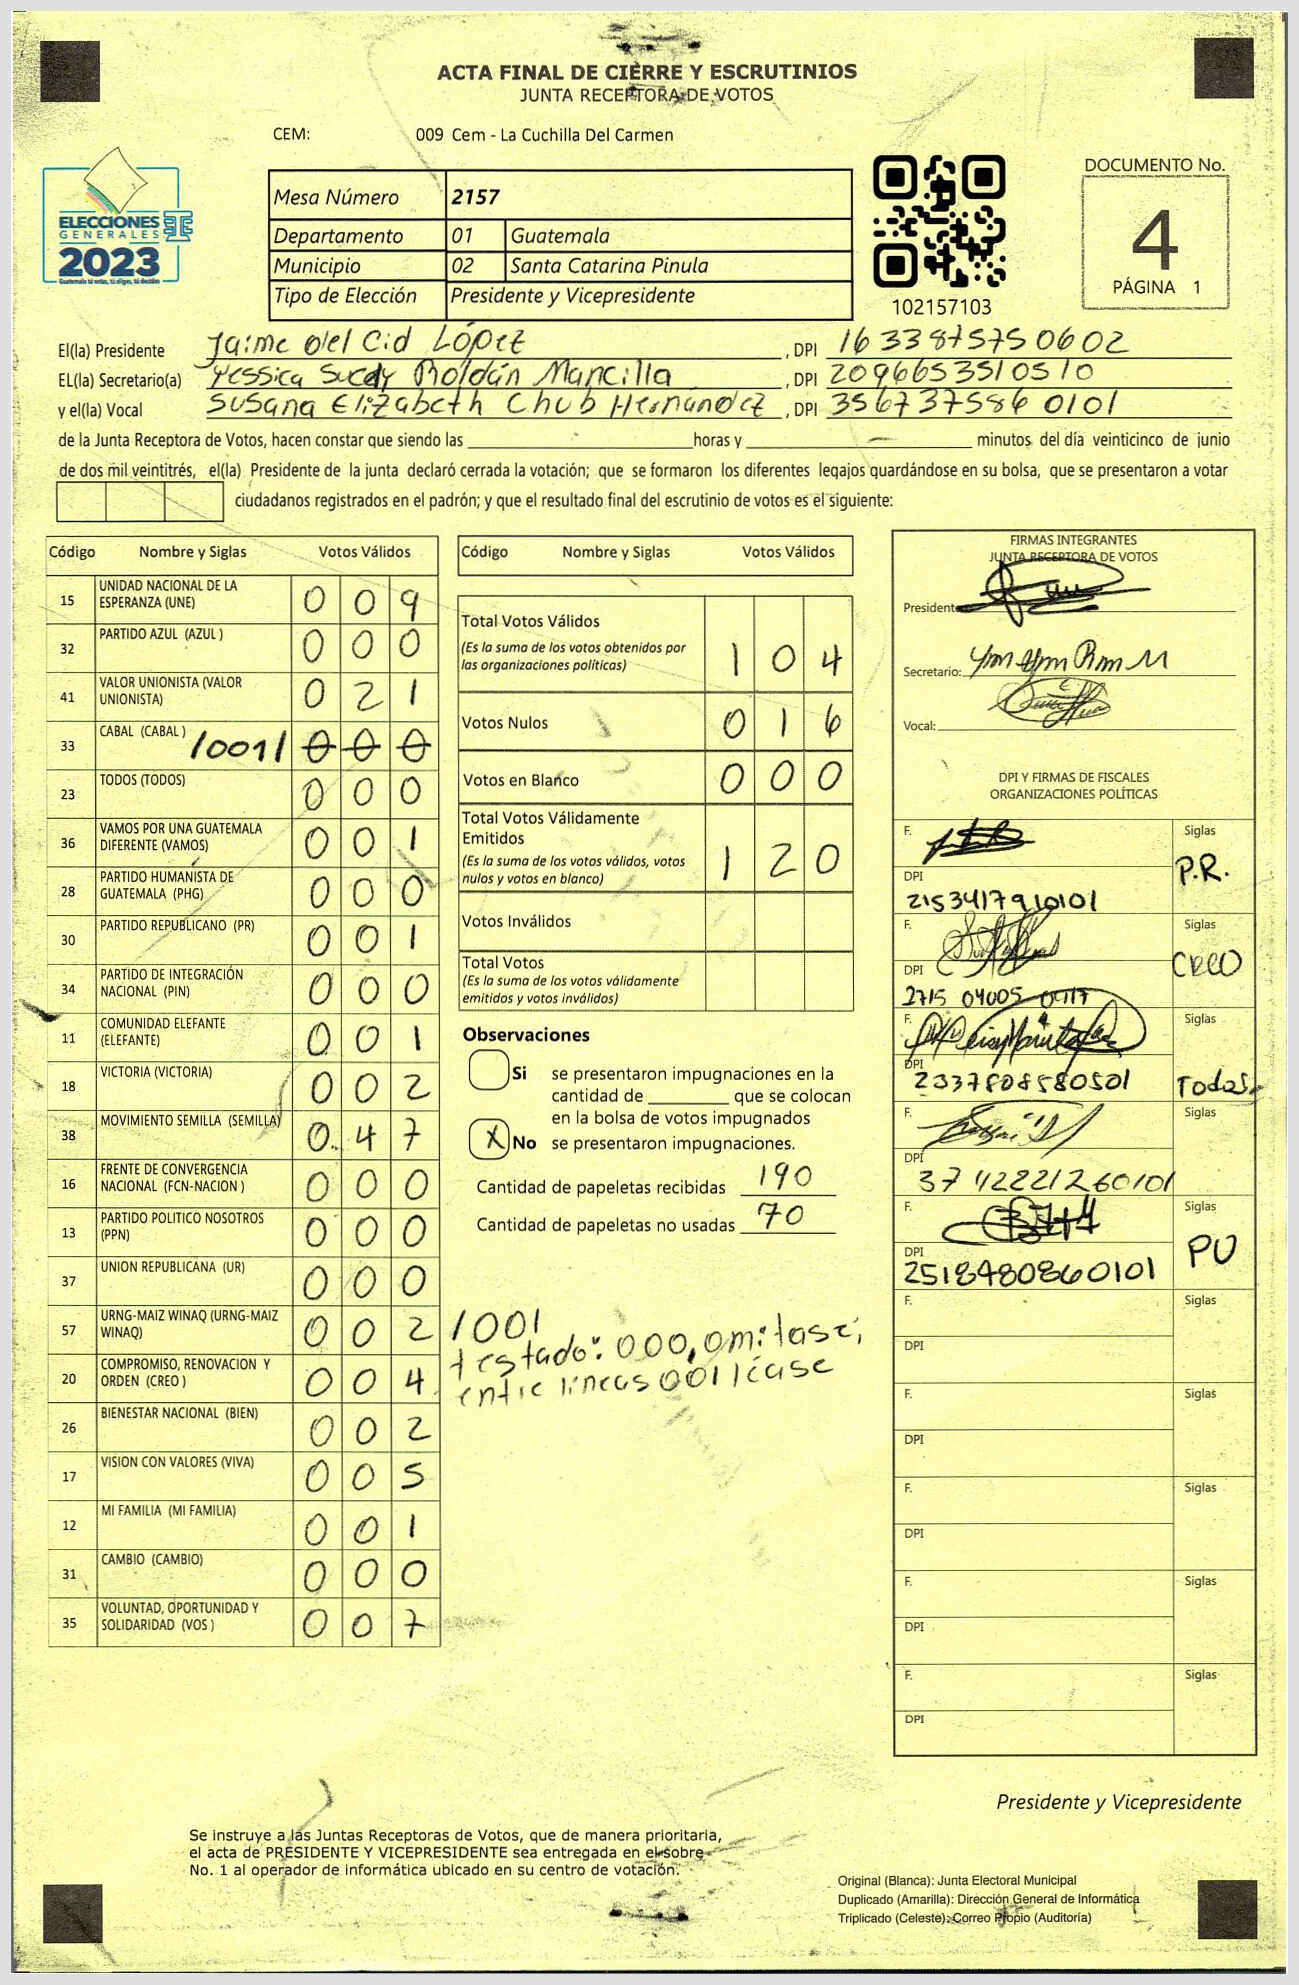 ACTA FINAL DE CIERRE Y ESCRUTINIOS
JUNTA RECEPTORA DE VOTOS
CEM: 009 Cem - La Cuchilla Del Carmen
ELECCIONES
GENERALES
2023
Mesa Número 2157
Departamento 01 Guatemala
Municipio 02 Santa Catarina Pinula
Tipo de Elección Presidente y Vicepresidente
102157103
DOCUMENTO No.
4
PÁGINA 1
El(la) Presidente Jaime del Cid López, DPI 1633875750602
EL(la) Secretario(a) Yessica Sucely Roldán Mancilla, DPI 2096653510510
y el(la) Vocal Susana Elizabeth Chub Hernandez, DPI 3567375860101
de la Junta Receptora de Votos, hacen constar que siendo las horas y minutos del día veinticinco de junio
de dos mil veintitrés, el(la) Presidente de la junta declaró cerrada la votación; que se formaron los diferentes legajos guardándose en su bolsa, que se presentaron a votar
ciudadanos registrados en el padrón; y que el resultado final del escrutinio de votos es el siguiente:
Código Nombre y Siglas Votos Válidos
15 UNIDAD NACIONAL DE LA ESPERANZA (UNE) 0 0 9
32 PARTIDO AZUL (AZUL ) 0 0 0
41 VALOR UNIONISTA (VALOR UNIONISTA) 0 2 1
33 CABAL (CABAL ) /001/ 0 0 0
23 TODOS (TODOS) 0 0 0
36 VAMOS POR UNA GUATEMALA DIFERENTE (VAMOS) 0 0 1
28 PARTIDO HUMANISTA DE GUATEMALA (PHG) 0 0 0
30 PARTIDO REPUBLICANO (PR) 0 0 1
34 PARTIDO DE INTEGRACIÓN NACIONAL (PIN) 0 0 0
11 COMUNIDAD ELEFANTE (ELEFANTE) 0 0 1
18 VICTORIA (VICTORIA) 0 0 2
38 MOVIMIENTO SEMILLA (SEMILLA) 0 4 7
16 FRENTE DE CONVERGENCIA NACIONAL (FCN-NACION ) 0 0 0
13 PARTIDO POLITICO NOSOTROS (PPN) 0 0 0
37 UNION REPUBLICANA (UR) 0 0 0
57 URNG-MAIZ WINAQ (URNG-MAIZ WINAQ) 0 0 2
20 COMPROMISO, RENOVACION Y ORDEN (CREO ) 0 0 4
26 BIENESTAR NACIONAL (BIEN) 0 0 2
17 VISION CON VALORES (VIVA) 0 0 5
12 MI FAMILIA (MI FAMILIA) 0 0 1
31 CAMBIO (CAMBIO) 0 0 0
35 VOLUNTAD, OPORTUNIDAD Y SOLIDARIDAD (VOS ) 0 0 7
Código Nombre y Siglas Votos Válidos
Total Votos Válidos 1 0 4
(Es la suma de los votos obtenidos por
las organizaciones políticas)
Votos Nulos 0 1 6
Votos en Blanco 0 0 0
Total Votos Válidamente
Emitidos 1 2 0
(Es la suma de los votos válidos, votos
nulos y votos en blanco)
Votos Inválidos
Total Votos
(Es la suma de los votos válidamente
emitidos y votos inválidos)
Observaciones
Si se presentaron impugnaciones en la
cantidad de que se colocan
en la bolsa de votos impugnados
X No se presentaron impugnaciones.
Cantidad de papeletas recibidas 190
Cantidad de papeletas no usadas 70
/001
testado: 000, omitase;
entre lineas 001 léase
FIRMAS INTEGRANTES
JUNTA RECEPTORA DE VOTOS
Presidente:
Secretario:
Vocal:
DPI Y FIRMAS DE FISCALES
ORGANIZACIONES POLÍTICAS
F. Siglas P.R.
DPI 2153417910101
F. Siglas CREO
DPI 2715 04005 0417
F. Siglas Todos
DPI 2337808580501
F. Siglas
DPI 3742221260101
F. Siglas PU
DPI 2518480860101
F. Siglas
DPI
F. Siglas
DPI
F. Siglas
DPI
F. Siglas
DPI
F. Siglas
DPI
Presidente y Vicepresidente
Se instruye a las Juntas Receptoras de Votos, que de manera prioritaria,
el acta de PRESIDENTE Y VICEPRESIDENTE sea entregada en el sobre
No. 1 al operador de informática ubicado en su centro de votación.
Original (Blanca): Junta Electoral Municipal
Duplicado (Amarilla): Dirección General de Informática
Triplicado (Celeste): Correo Propio (Auditoría)